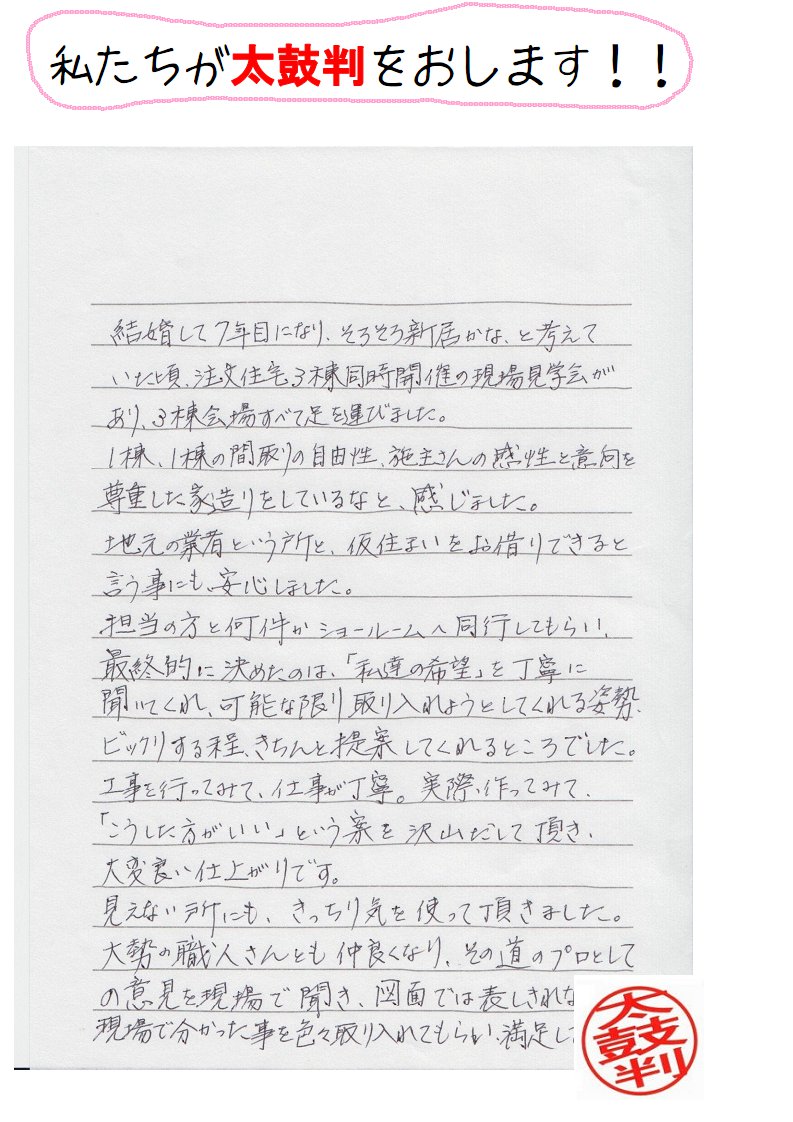 私たちが太鼓判をおします！！
結婚して7年目になり、そろそろ新居かな、と考えて
いた頃、注文住宅3棟同時開催の現場見学会が
あり、3棟会場すべて足を運びました。
1棟、1棟の間取りの自由性、施主さんの感性と意向を
尊重した家造りをしているなと、感じました。
地元の業者という所と、仮住まいをお借りできると
言う事にも、安心しました。
担当の方と何件かショールームへ同行してもらい、
最終的に決めたのは、「私達の希望」を丁寧に
聞いてくれ、可能な限り取り入れようとしてくれる姿勢、
ビックリする程、きちんと提案してくれるところでした。
工事を行ってみて、仕事が丁寧。実際、作ってみて、
「こうした方がいい」という案を沢山だして頂き、
大変良い仕上がりです。
見えない所にも、きっちり気を使って頂きました。
大勢の職人さんとも仲良くなり、その道のプロとして
の意見を現場で聞き、図面では表しきれな
現場で分かった事を色々取り入れてもらい、満足し
太鼓判